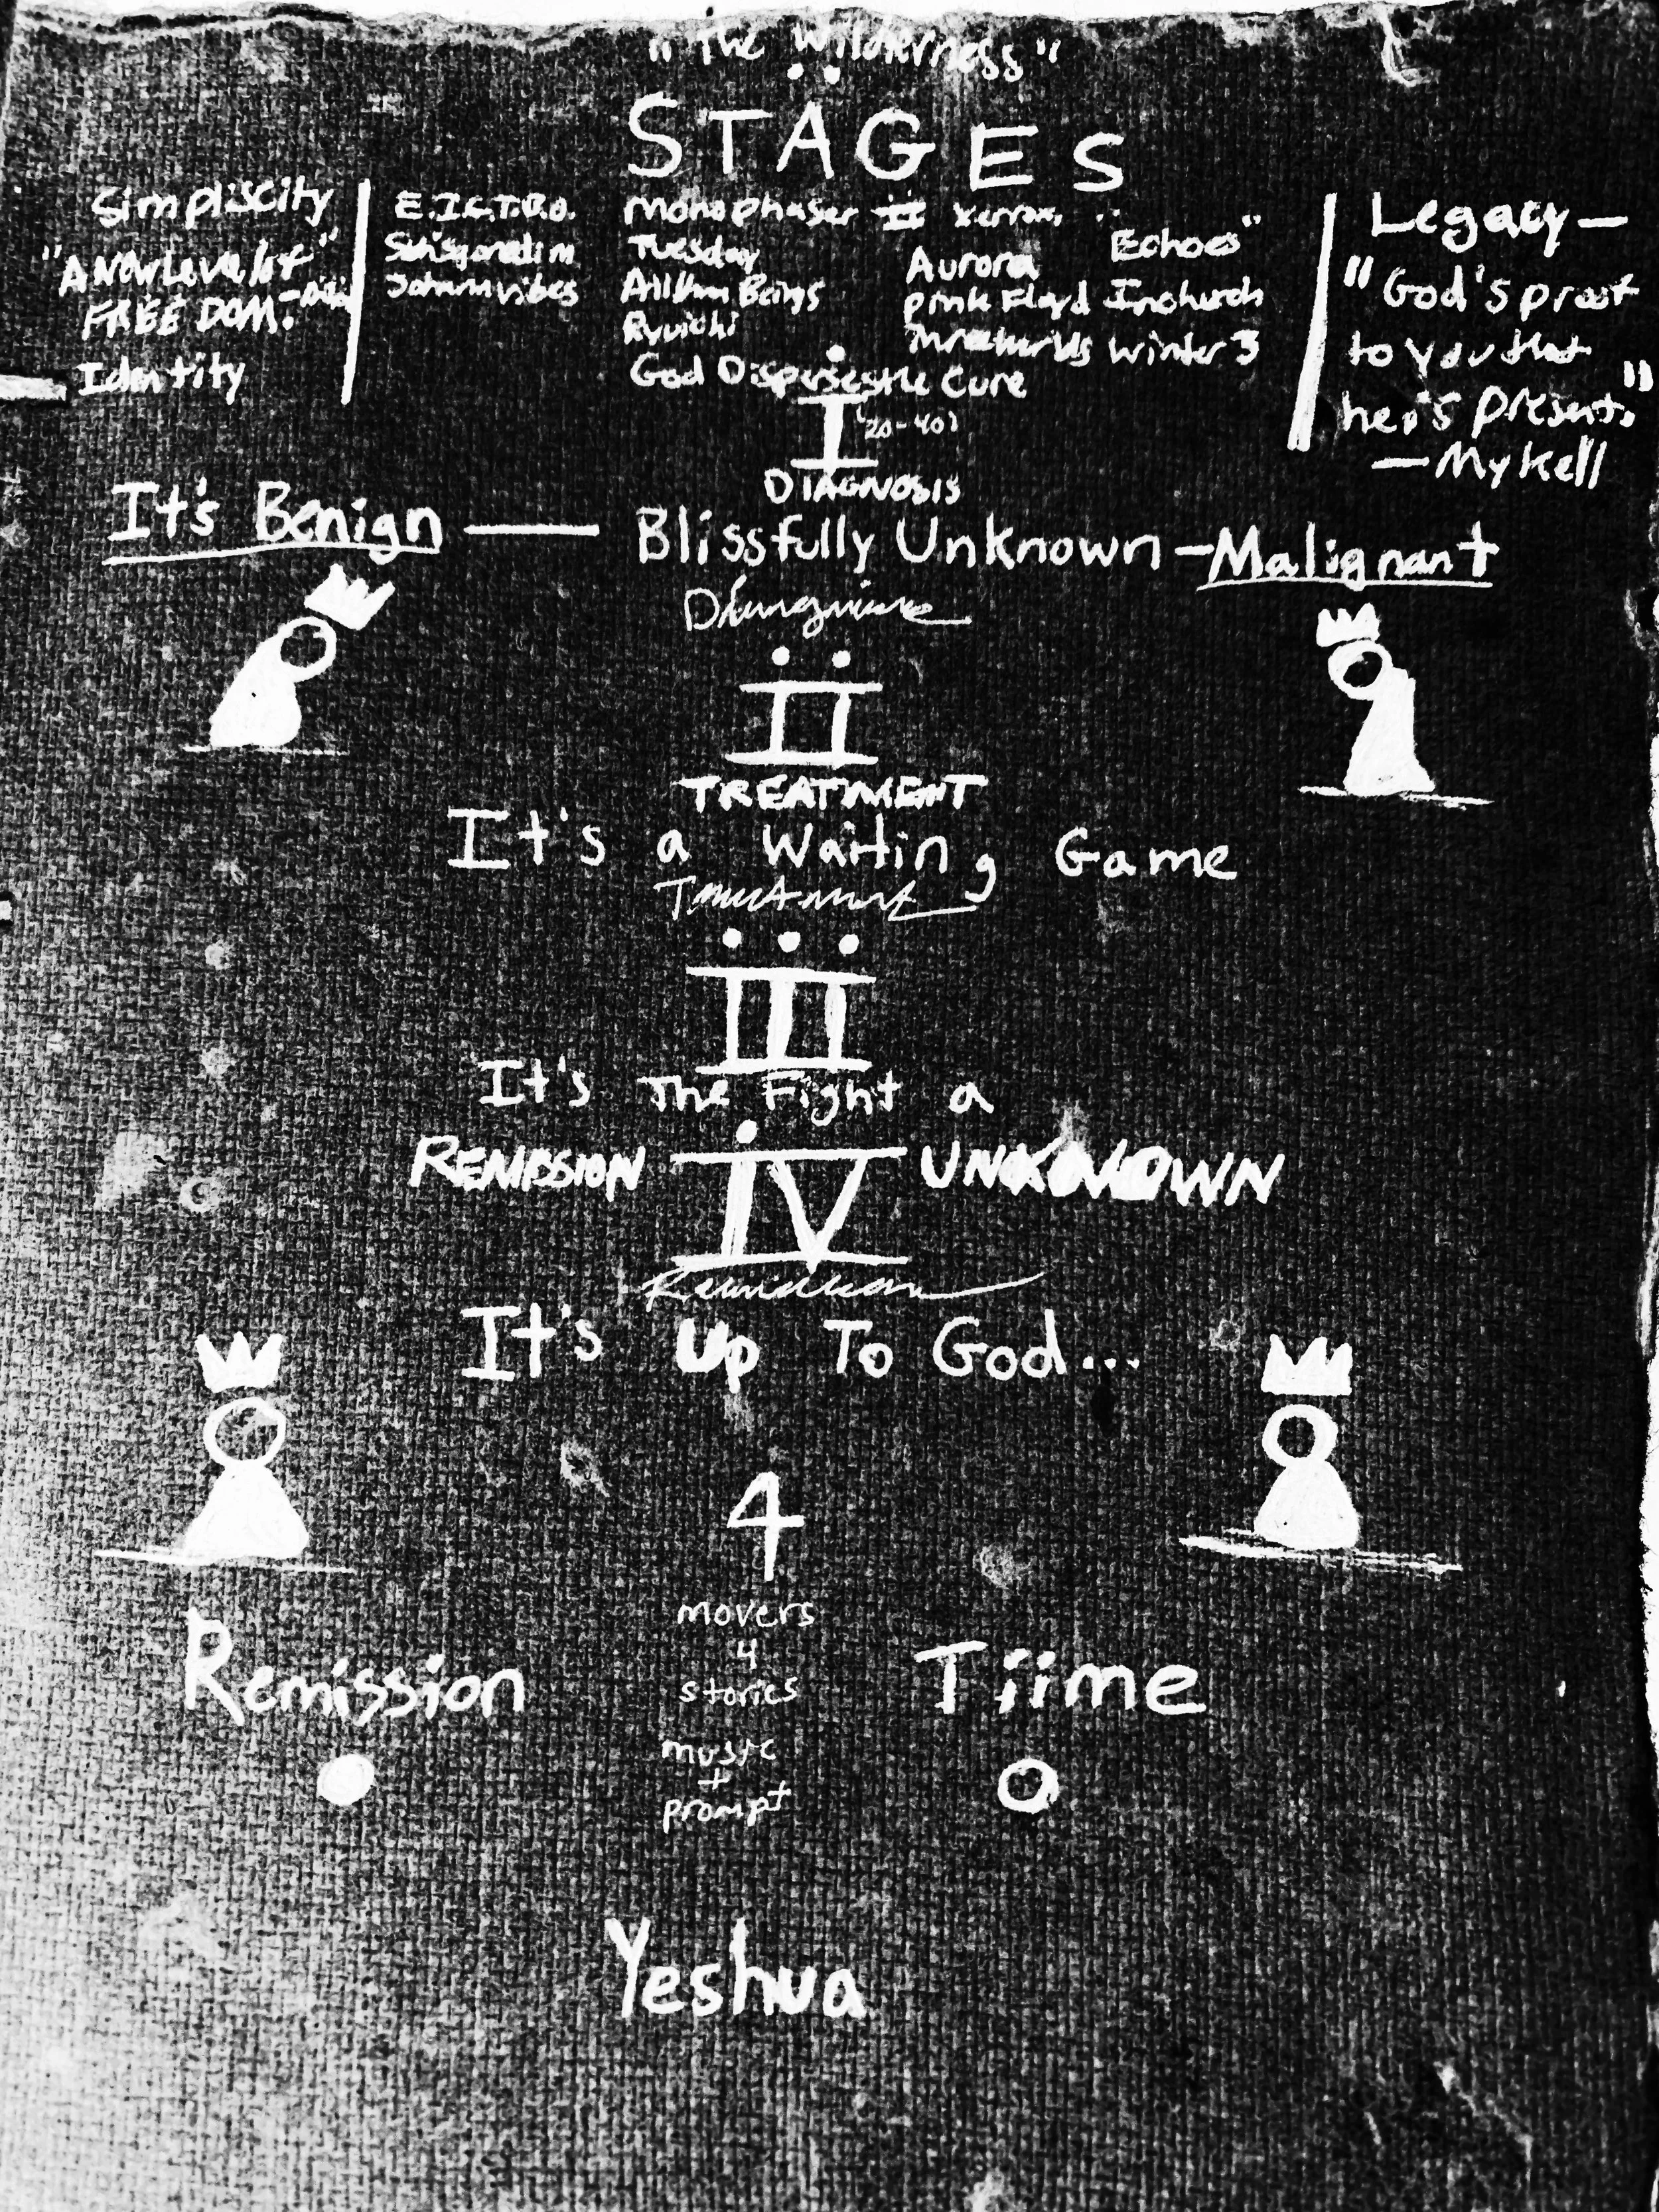 "The Wilderness"
STAGES
Simpliscity
FREEDOM.
Identity
E.I.C.T.B.O.
Monophaser II Xerrox,
Tuesday
All Human Beings
Ryuichi
God Disperses the Cure
Aurora "Echoes"
Pink Floyd In church
Winter 3
Legacy—
"God's proof
to you that
he is present."
—Mykell
I '20-40)
DIAGNOSIS
It's Benign — Blissfully Unknown - Malignant
II
TREATMENT
It's a Waiting Game
III
It's The Fight a
REMISSION IV UNKNOWN
It's Up To God...
4
movers
4
stories
music
+
prompt
Remission
Tiime
Yeshua